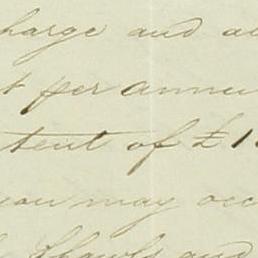 harge and al
t per annu
tent of £1
you may occ
Shawls and